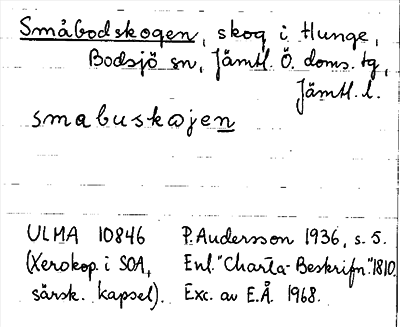 Småbodskogen, skog i Hunge,
Bodsjö sn, Jämtl. Ö. doms. tg,
Jämtl. l.
småbuskøjen
ULMA 10846 P. Andersson 1936, s. 5.
(Xerokop. i SOA, Enl. "Charta-Beskrifn." 1810.
särsk. kapsel). Exc. av E.Å. 1968.